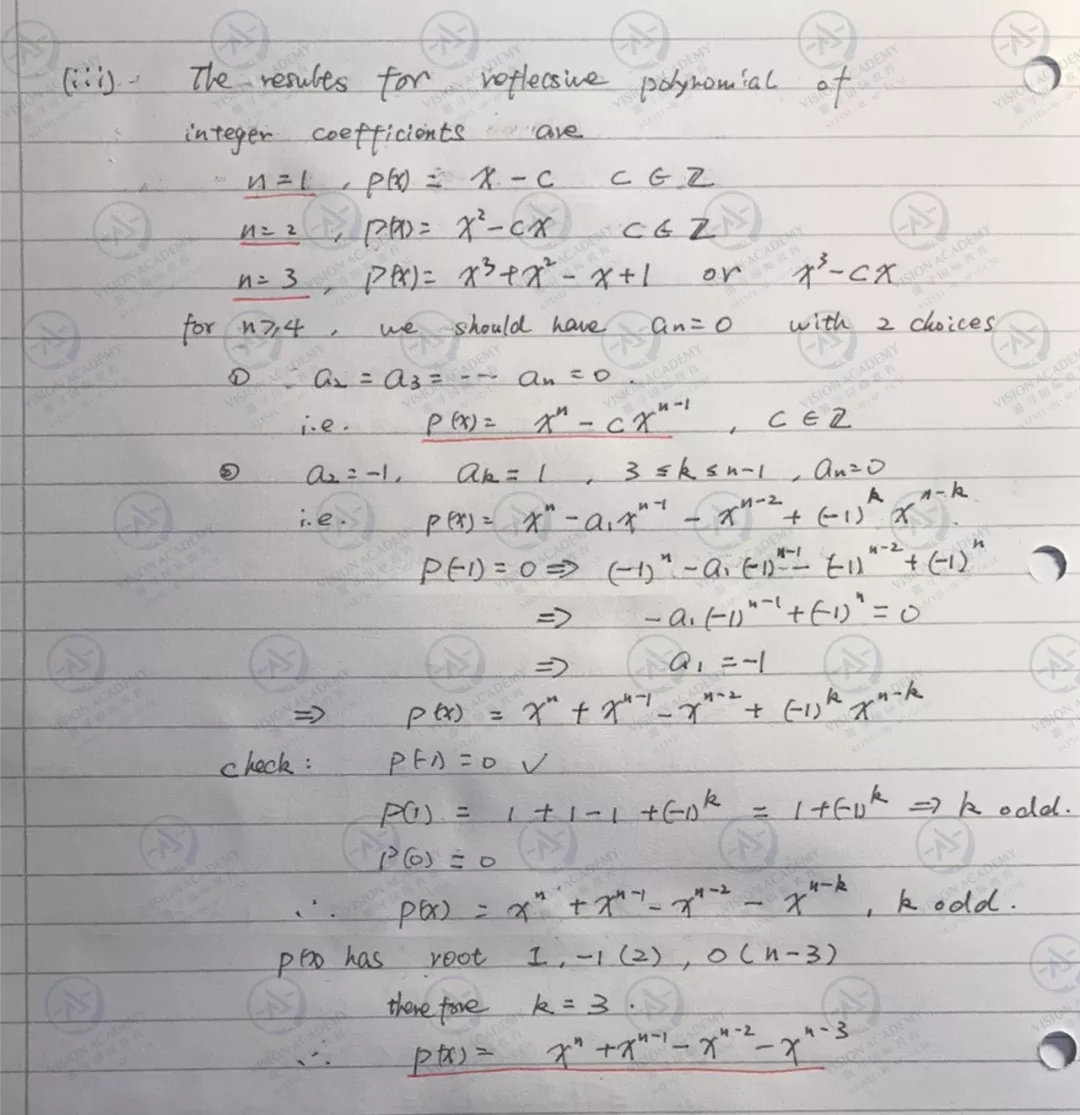 (iii). The results for reflecsive polynomial of
integer coefficients are
n=1, P(x) = x - c   c ∈ Z
n=2, P(x) = x² - cx   c ∈ Z
n=3, P(x) = x³ + x² - x + 1 or x³ - cx
for n⩾4, we should have aₙ=0 with 2 choices
① a₂ = a₃ = --- aₙ = 0.
i.e. P(x) = xⁿ - cxⁿ⁻¹, c ∈ Z
② a₂ = -1, aₖ = 1, 3 ≤ k ≤ n-1, aₙ=0
i.e. P(x) = xⁿ - a₁xⁿ⁻¹ - xⁿ⁻² + (-1)ᵏ xⁿ⁻ᵏ.
P(-1) = 0 ⇒ (-1)ⁿ - a₁(-1)ⁿ⁻¹ - (-1)ⁿ⁻² + (-1)ⁿ
⇒ -a₁(-1)ⁿ⁻¹ + (-1)ⁿ = 0
⇒ a₁ = -1
⇒ P(x) = xⁿ + xⁿ⁻¹ - xⁿ⁻² + (-1)ᵏ xⁿ⁻ᵏ
check: P(-1) = 0 ✓
P(1) = 1 + 1 - 1 + (-1)ᵏ = 1 + (-1)ᵏ ⇒ k odd.
P(0) = 0
∴ P(x) = xⁿ + xⁿ⁻¹ - xⁿ⁻² - xⁿ⁻ᵏ, k odd.
P(x) has root 1, -1(2), 0(n-3)
therefore k = 3.
∴ P(x) = xⁿ + xⁿ⁻¹ - xⁿ⁻² - xⁿ⁻³